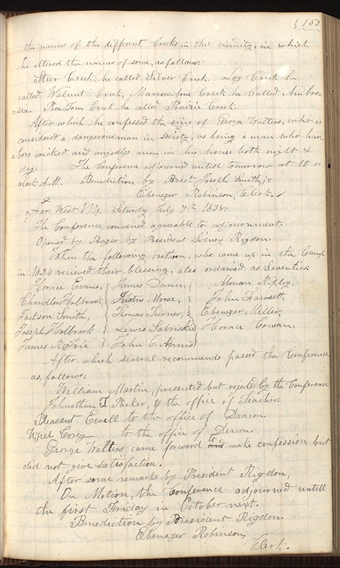 103
the names of the different Creeks in this vicinity, in which
he altered the names of some, as follows:
Creek, he called, Silver Creek. Log Creek he
called Walnut Creek, Marrowbone Creek he Called Ambro
sia. Creek he called Prairie Creek.
After which he confessed the sins of George Walters, who is
considered a dangerous man in society, as being a man who har
bors wicked and ungodly men in his house both night &
day. The Conference adjourned untill tomorrow at 10 o
clock A.M. Benediction by Prest Joseph Smith, jr
Ebenezer Robinson, Clerk.
Far West Mo. Saturday July 7th 1838.
The Conference, convened agreeable to adjournment.
Opened by Prayer by President Sidney Rigdon.
When the following brethren, who came up in the Camp
in 1834 received their blessing, also ordained as Seventies
Horace Evans, James Dunn, Monson Ripley,
Chandler Holbrook, Justin Morse, John
Jackson Smith, Thomas Turner, Ebenezer Miller,
Joseph Holbrook Lewis Horace Cowan,
James John C. Annis
After, which several recommends passed the Conference
as, follows;
William Martin, presented but rejected by the Conference
Johnathan T. Packer, to the office of Teacher
Pleasant Ewell to the office of Deacon
Cory to the office of Deacon.
George Walters came forward to make confession but
did not, give satisfaction.
After some remarks by President Rigdon,
On Motion, the Conference adjourned untill
the first Friday in October next.
Benediction by President Rigdon
Ebenezer Robinson,
Clerk.